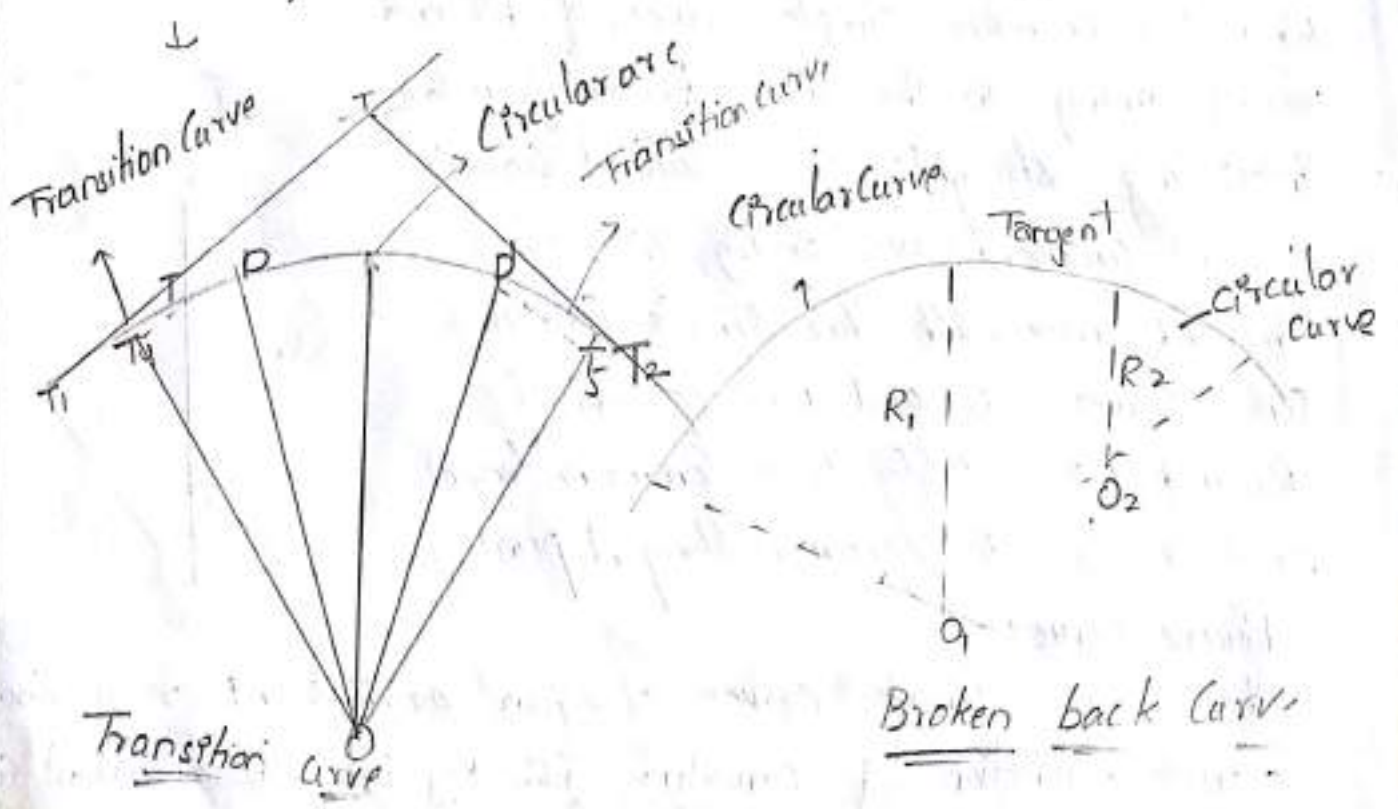 Transition Curve
T
Circular arc
Transition Curve
T
D
D
T4
T1
T5
T2
O
Transition curve
Circular Curve
Tangent
Circular
curve
R1
R2
O2
O1
Broken back Curve